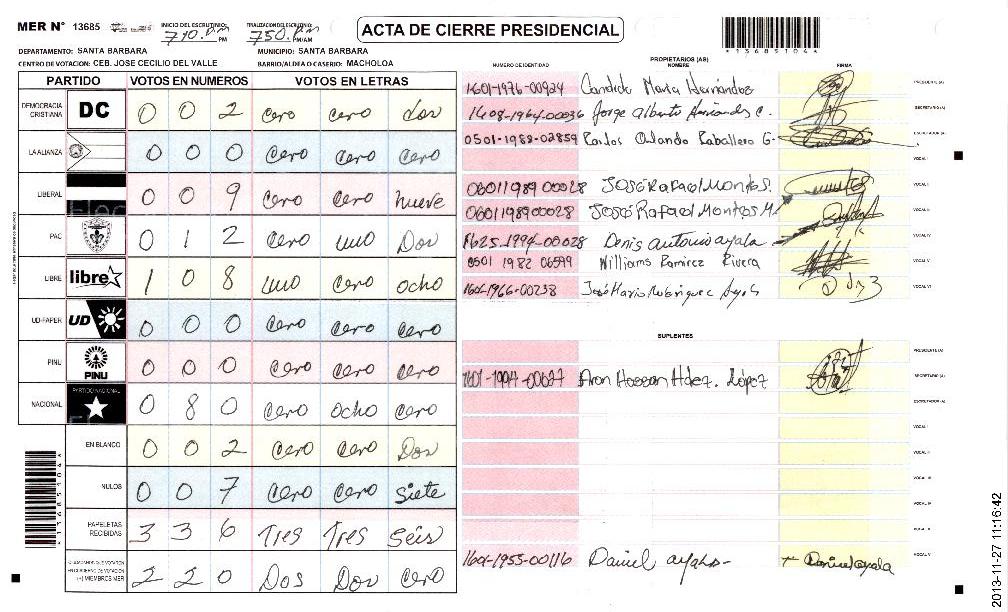 MER N° 13685
INICIO DEL ESCRUTINIO: 710. PM
FINALIZACION DEL ESCRUTINIO: 750. PM/AM
ACTA DE CIERRE PRESIDENCIAL
*1368510 4*
DEPARTAMENTO: SANTA BARBARA MUNICIPIO: SANTA BARBARA
CENTRO DE VOTACION: CEB. JOSE CECILIO DEL VALLE BARRIO/ALDEA O CASERIO: MACHOLOA
PARTIDO VOTOS EN NUMEROS VOTOS EN LETRAS
DEMOCRACIA CRISTIANA DC 0 0 2 cero cero dos
LA ALIANZA 0 0 0 Cero cero cero
LIBERAL 0 0 9 cero cero nueve
PAC 0 1 2 cero uno Dos
LIBRE libre 1 0 8 uno cero ocho
UD-FAPER UD 0 0 0 cero cero cero
PINU PINU 0 0 0 cero cero cero
NACIONAL PARTIDO NACIONAL 0 8 0 cero ocho cero
EN BLANCO 0 0 2 cero cero Dos
NULOS 0 0 7 cero cero siete
PAPELETAS RECIBIDAS 3 3 6 Tres Tres seis
CIUDADANOS QUE VOTARON EN CUADERNO DE VOTACION (+) MIEMBROS MER 2 2 0 Dos Dos cero
PROPIETARIOS (AS)
NUMERO DE IDENTIDAD NOMBRE FIRMA
1601-1976-00924 Candida Maria Hernández PRESIDENTE (A)
1608-1964-00036 Jorge Alberto Hernández C. SECRETARIO (A)
0501-1988-02859 Carlos Orlando Caballero G. ESCRUTADOR (A)
VOCAL I
0601 1989 00028 José Rafael Montes. VOCAL II
0601198900028 José Rafael Montes M. VOCAL III
1625-1994-00028 Denis antonio ayala VOCAL IV
0501 1982 06599 Williams Ramirez Rivera VOCAL V
1601-1966-00238 José Mario Rodriguez VOCAL VI
SUPLENTES
PRESIDENTE (A)
1601-1994-00627 Aron Hdez. López SECRETARIO (A)
ESCRUTADOR (A)
VOCAL I
VOCAL II
VOCAL III
VOCAL IV
VOCAL V
1601-1955-00116 Daniel ayala Daniel ayala VOCAL V
2013-11-27 11:16:42